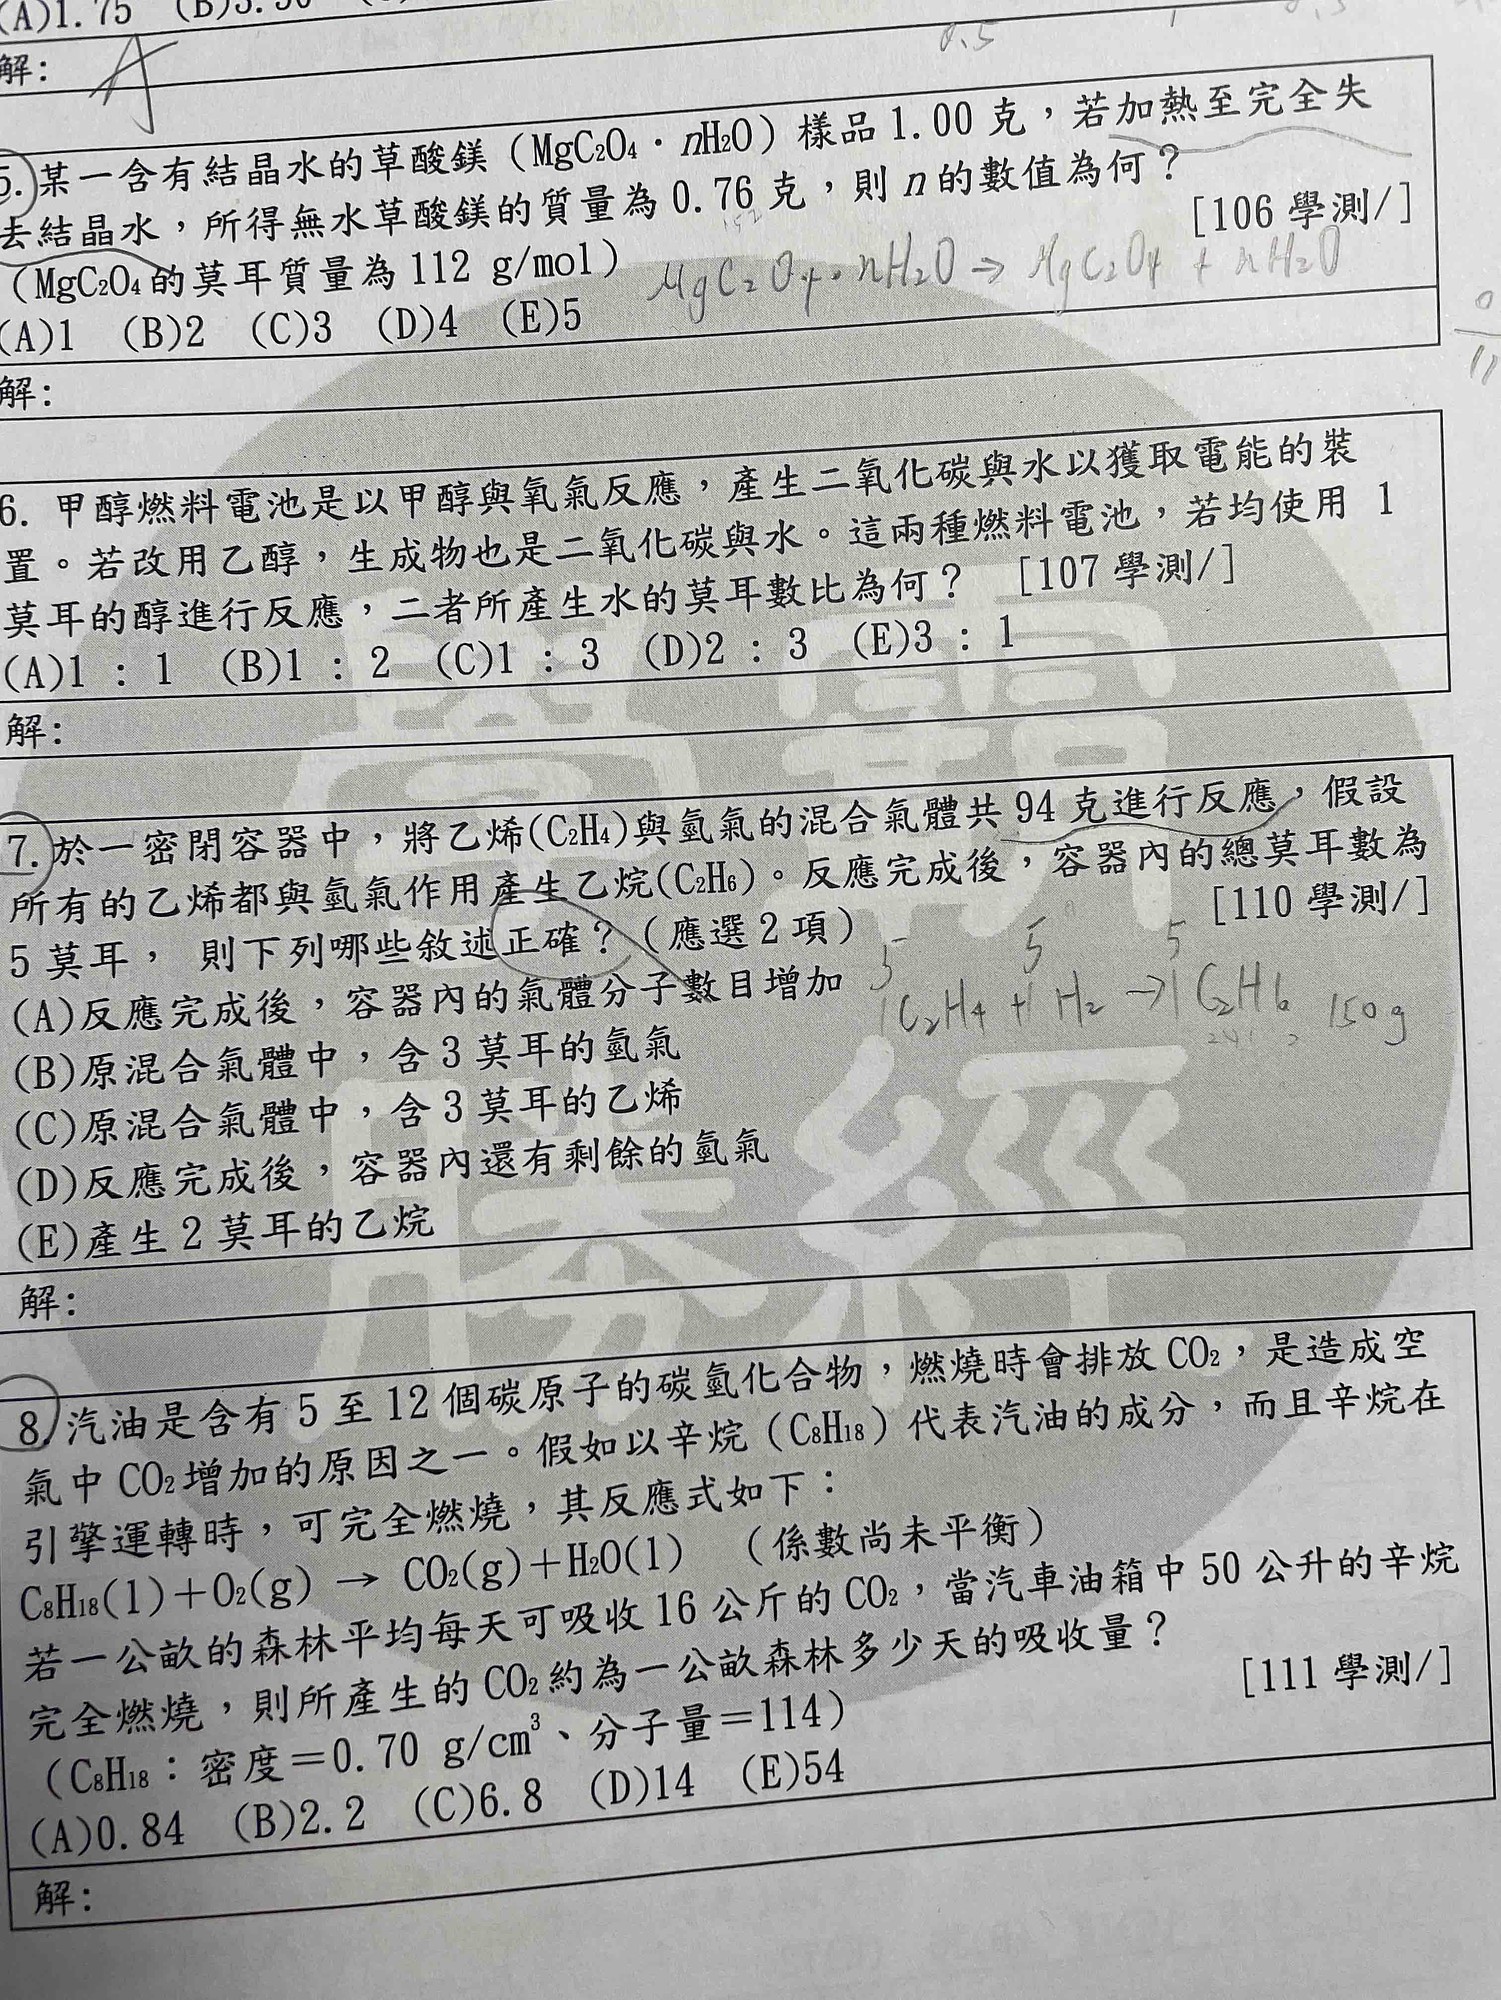 (A)1.75
0.5
解：
A
5. 某一含有結晶水的草酸鎂（MgC₂O₄．nH₂O）樣品1.00克，若加熱至完全失
去結晶水，所得無水草酸鎂的質量為0.76克，則n的數值為何？
[106學測/]
（MgC₂O₄的莫耳質量為112 g/mol）
MgC₂O₄·nH₂O → MgC₂O₄ + nH₂O
(A)1 (B)2 (C)3 (D)4 (E)5
解：
6. 甲醇燃料電池是以甲醇與氧氣反應，產生二氧化碳與水以獲取電能的裝
置。若改用乙醇，生成物也是二氧化碳與水。這兩種燃料電池，若均使用 1
莫耳的醇進行反應，二者所產生水的莫耳數比為何？ [107學測/]
(A)1 : 1 (B)1 : 2 (C)1 : 3 (D)2 : 3 (E)3 : 1
解：
學霸
勝經
7. 於一密閉容器中，將乙烯(C₂H₄)與氫氣的混合氣體共94克進行反應，假設
所有的乙烯都與氫氣作用產生乙烷(C₂H₆)。反應完成後，容器內的總莫耳數為
5莫耳， 則下列哪些敘述正確？（應選2項）
[110學測/]
(A)反應完成後，容器內的氣體分子數目增加
5 5 5
1C₂H₄ + 1H₂ → 1C₂H₆ 150g
(B)原混合氣體中，含3莫耳的氫氣
(C)原混合氣體中，含3莫耳的乙烯
(D)反應完成後，容器內還有剩餘的氫氣
(E)產生2莫耳的乙烷
解：
8. 汽油是含有5至12個碳原子的碳氫化合物，燃燒時會排放CO₂，是造成空
氣中CO₂增加的原因之一。假如以辛烷（C₈H₁₈）代表汽油的成分，而且辛烷在
引擎運轉時，可完全燃燒，其反應式如下：
C₈H₁₈(l)＋O₂(g) → CO₂(g)＋H₂O(l) （係數尚未平衡）
若一公畝的森林平均每天可吸收16公斤的CO₂，當汽車油箱中50公升的辛烷
完全燃燒，則所產生的CO₂約為一公畝森林多少天的吸收量？
[111學測/]
（C₈H₁₈：密度＝0.70 g/cm³、分子量＝114）
(A)0.84 (B)2.2 (C)6.8 (D)14 (E)54
解：